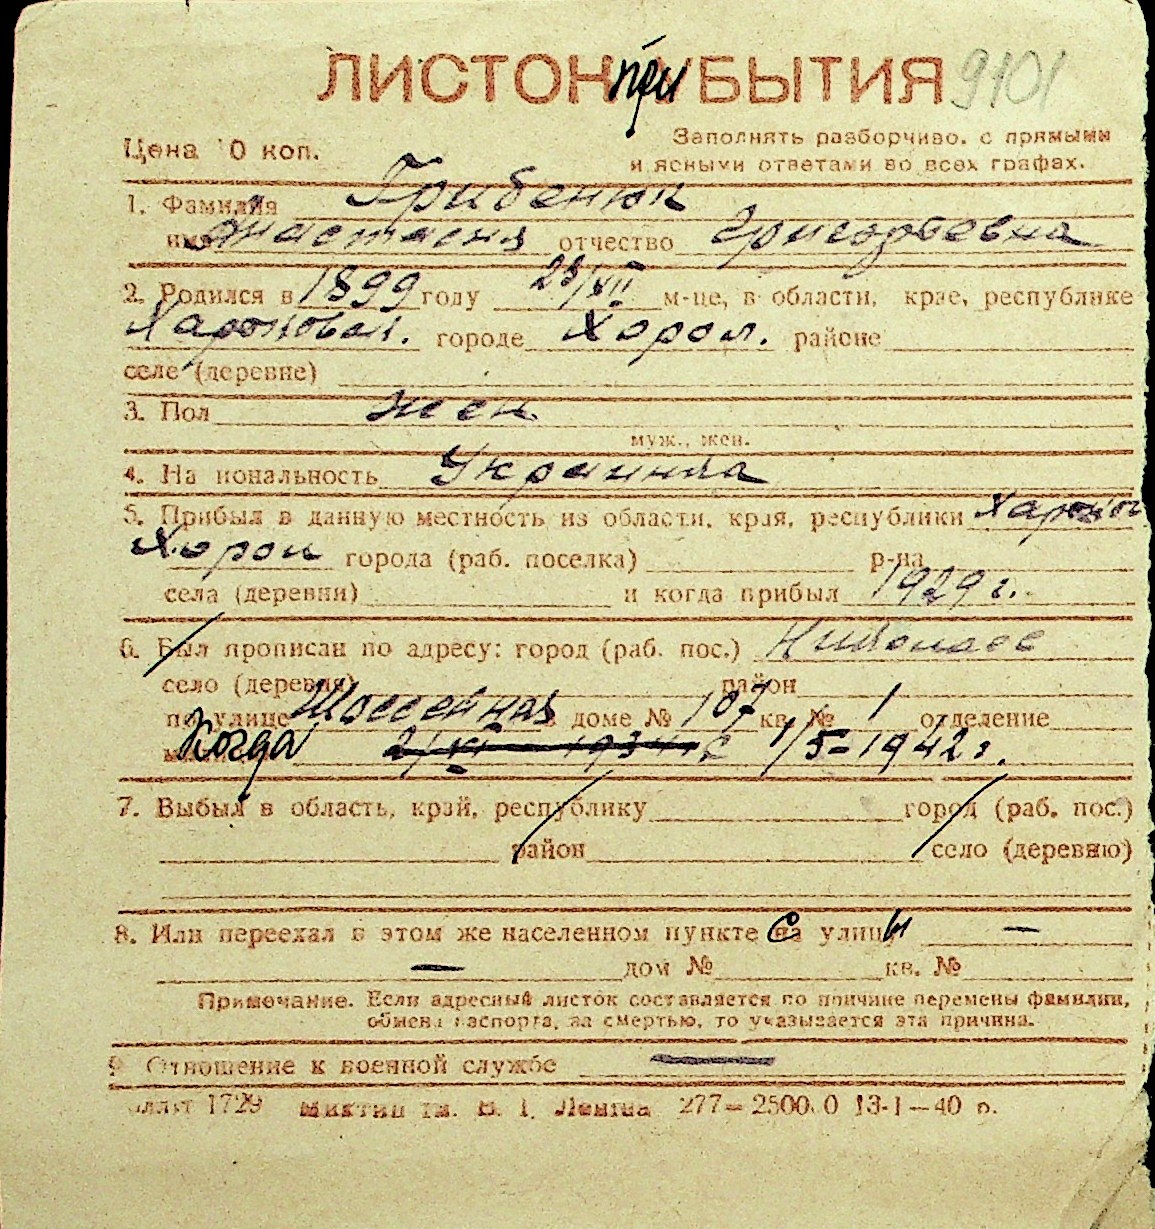 ЛИСТОК при УБЫТИЯ 9101
Цена 10 коп.
Заполнять разборчиво, с прямыми
и ясными ответами во всех графах.
1. Фамилия Грибенюк
имя Анастасия отчество Григорьевна
2. Родился в 1899 году 23/XII м-це, в области, крае, республике
городе Хорол. районе
селе (деревне)
3. Пол жен
муж., жен.
4. Национальность Украинка
5. Прибыл в данную местность из области, края, республики
Хорол города (раб. поселка) р-на
села (деревни) и когда прибыл 1929 г.
6. Был прописан по адресу: город (раб. пос.) Николаев
село (деревня) район
по улице Шоссейная в доме № 107 кв. № 1 отделение
Когда 21/XI — 1934 г. 1/5-1942 г.
7. Выбыл в область, край, республику город (раб. пос.)
район село (деревню)
8. Или переехал в этом же населенном пункте с улицы —
— дом № кв. №
Примечание. Если адресный листок составляется по причине перемены фамилии,
обмена паспорта, за смертью, то указывается эта причина.
9 Отношение к военной службе —
1729 им. В. І. Леніна 277—2500.0 13-I—40 р.